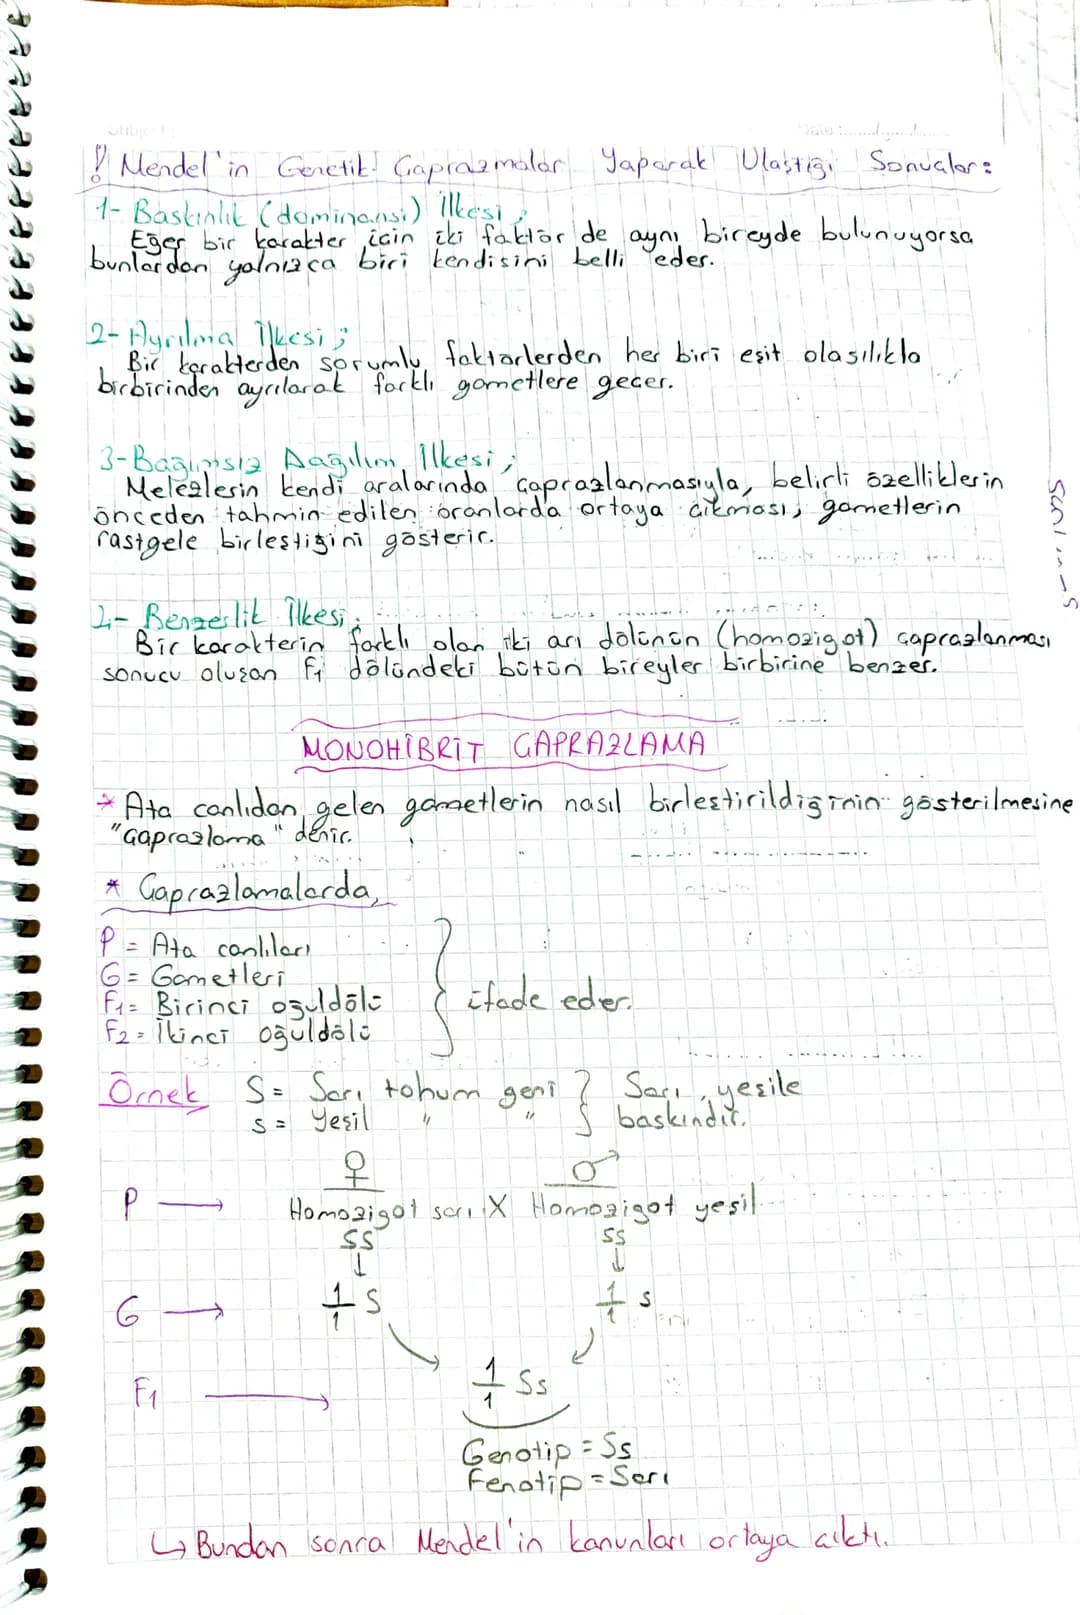 Subject
Date:
! Mendel'in Genetik Çaprazmalar Yaparak Ulaştığı Sonuçlar:
1- Baskınlık (dominansi) İlkesi;
Eğer bir karakter için iki faktör de aynı bireyde bulunuyorsa
bunlardan yalnızca biri kendisini belli eder.
2- Ayrılma İlkesi;
Bir karakterden sorumlu faktörlerden her biri eşit olasılıkla
birbirinden ayrılarak farklı gametlere geçer.
3- Bağımsız Dağılım İlkesi;
Melezlerin kendi aralarında çaprazlanmasıyla, belirli özelliklerin
önceden tahmin edilen oranlarda ortaya çıkması, gametlerin
rastgele birleştiğini gösterir.
4- Benzerlik İlkesi;
Bir karakterin farklı olan iki arı dölünün (homozigot) çaprazlanması
sonucu oluşan F1 dölündeki bütün bireyler birbirine benzer.
MONOHİBRİT ÇAPRAZLAMA
* Ata canlıdan gelen gametlerin nasıl birleştirildiğinin gösterilmesine
"Çaprazlama" denir.
* Çaprazlamalarda,
P = Ata canlıları
G = Gametleri
F1 = Birinci oğuldölü
F2 = İkinci oğuldölü
} ifade eder.
Örnek S = Sarı tohum geni } Sarı, yeşile
s = Yeşil " " baskındır.
♀ ♂
P → Homozigot sarı X Homozigot yeşil
SS ss
↓ ↓
G → 1/1 S 1/1 s
F1 → 1/1 Ss
Genotip = Ss
Fenotip = Sarı
↳ Bundan sonra Mendel'in kanunları ortaya çıktı.